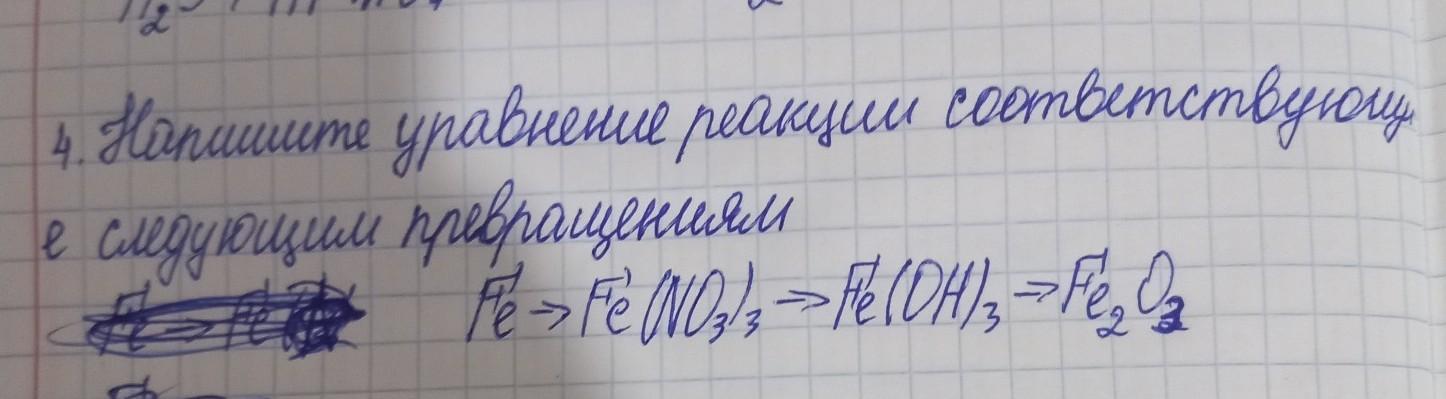 4. Напишите уравнение реакции соответствующи
е следующим превращениям
Fe → Fe(NO₃)₃ → Fe(OH)₃ → Fe₂O₃